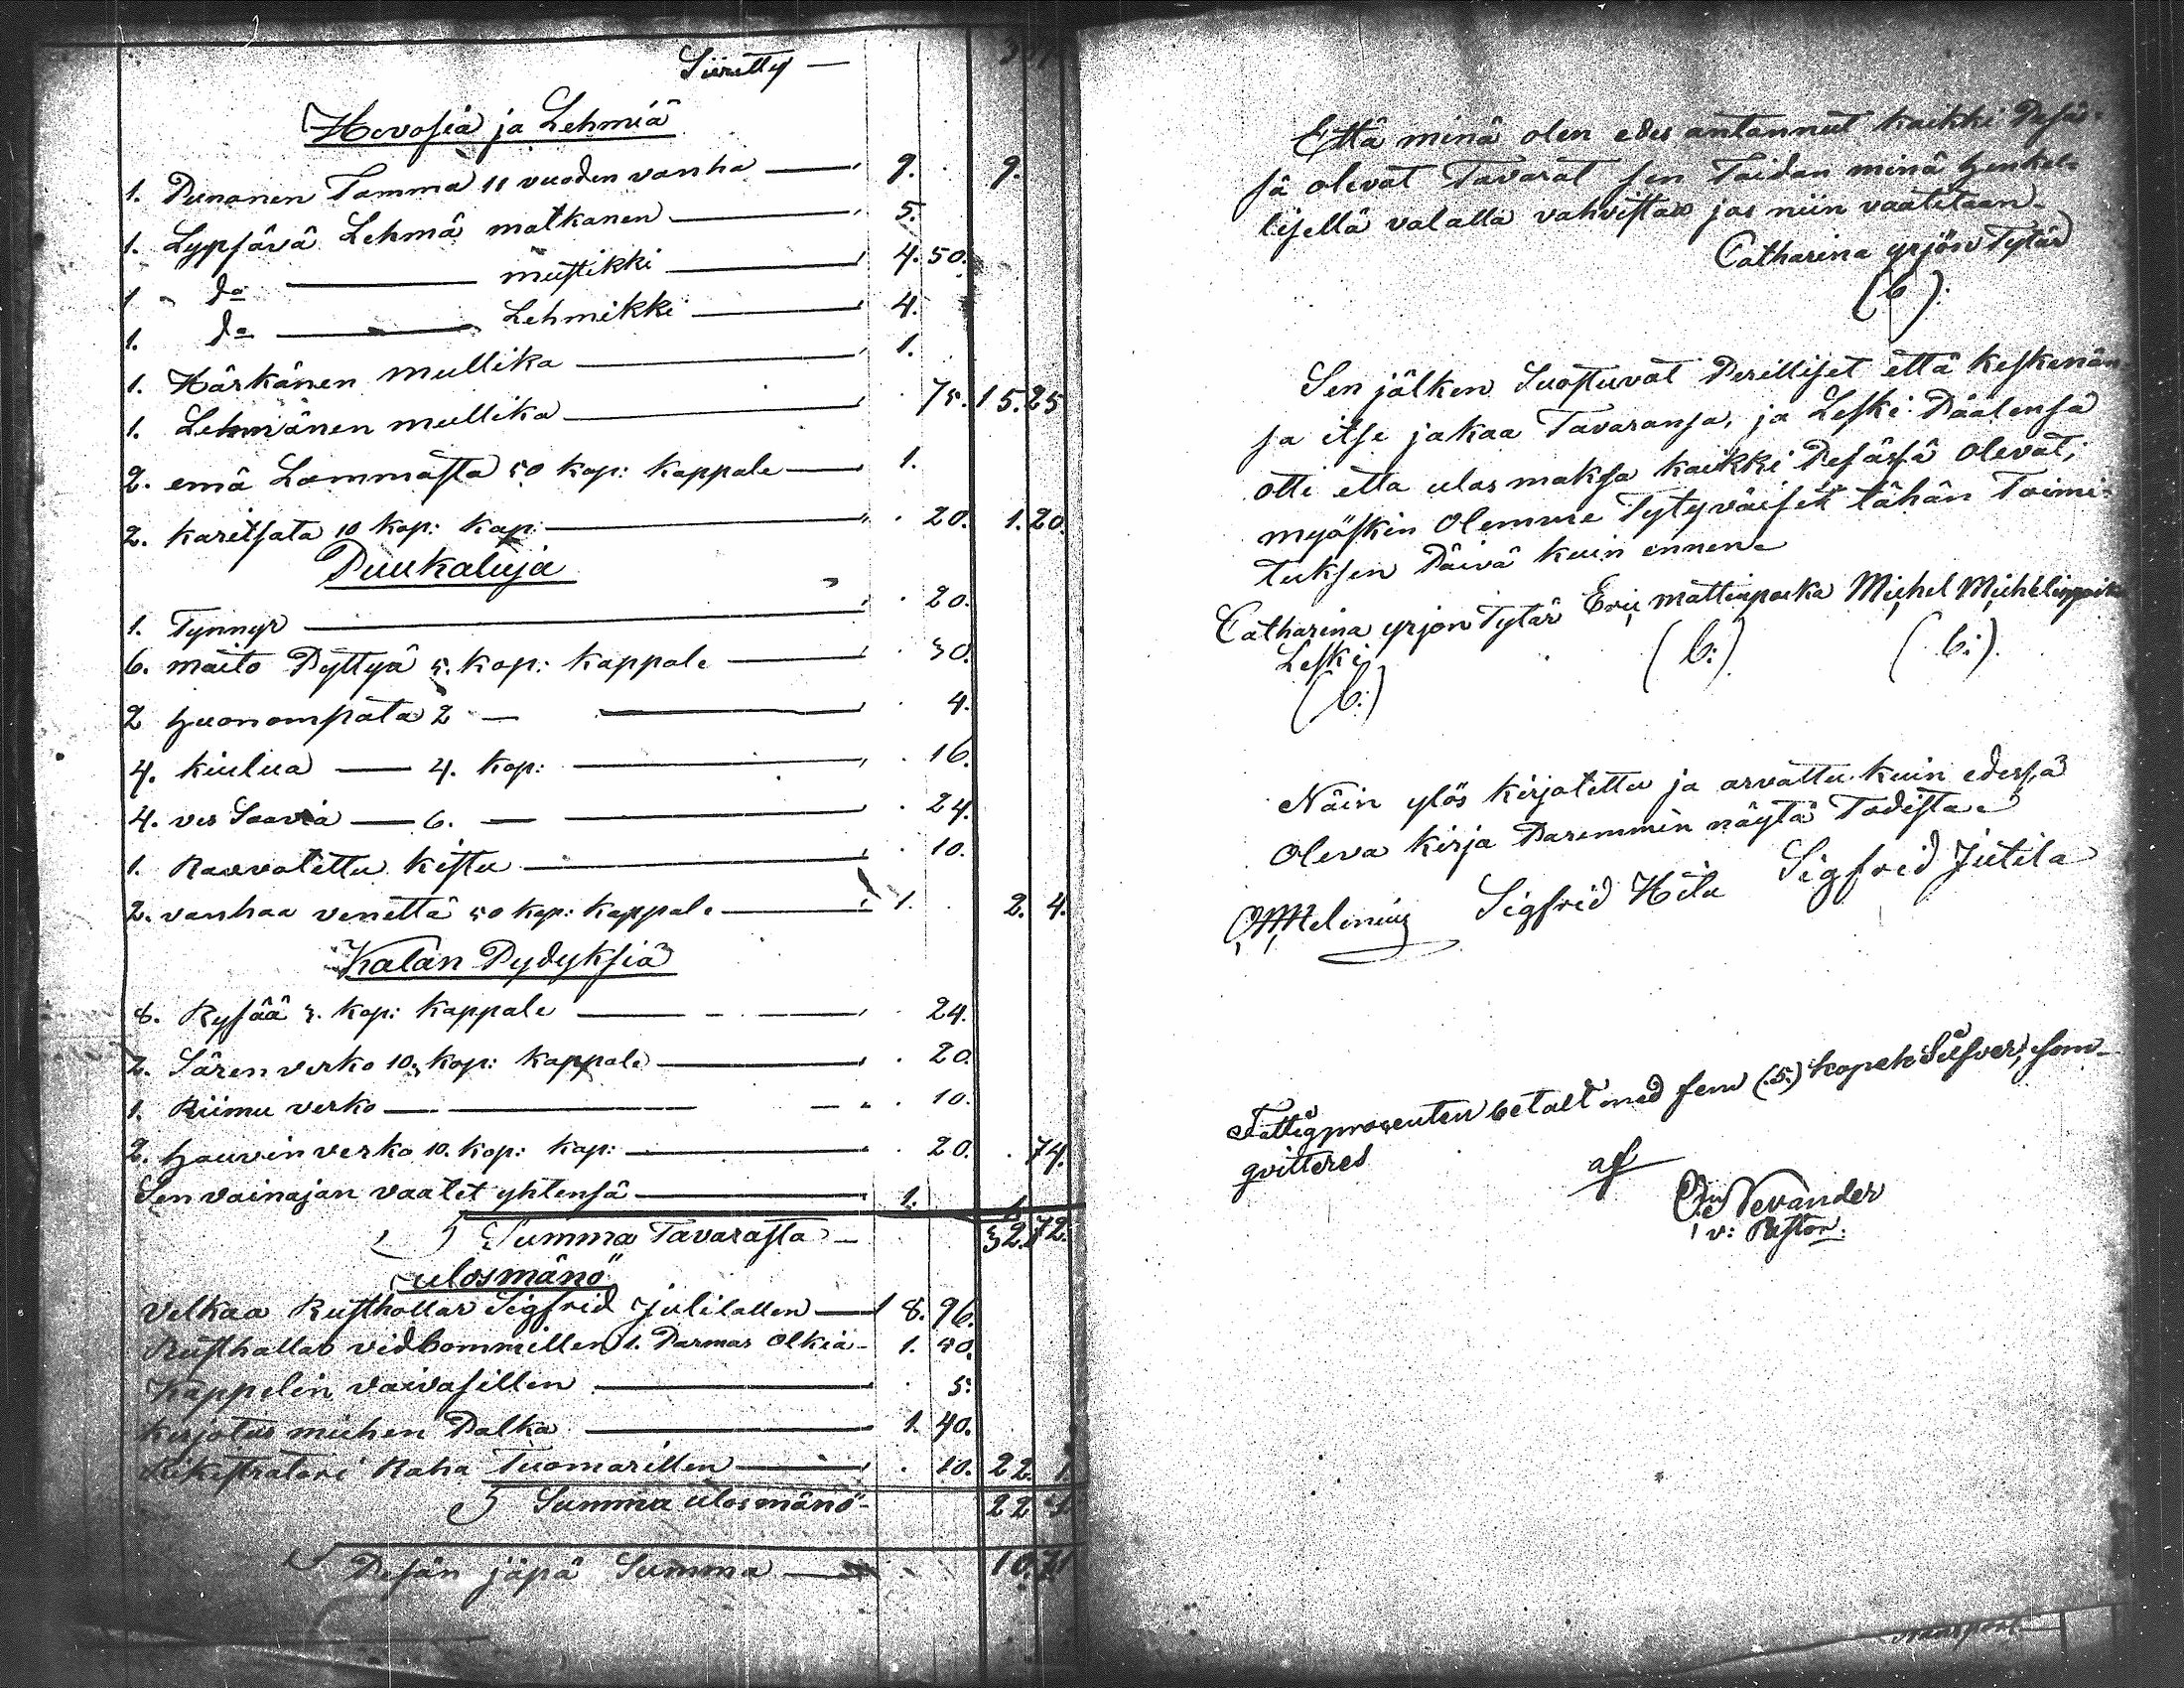 Siiretty —
Hevosia ja Lehmiä
1. Punanen Tamma 11 vuoden vanha — 9. 9.
1. Lypsävä Lehmä matkanen — 5.
1 do — mustikki — 4. 50.
1. do — Lehmikki — 4.
1. Härkänen mullika — 1.
1. Lehmänen mullika — 75. 15. 25
2. emä Lammasta 50 kop: kappale — 1.
2. karitsata 10 kop: kap: — 20. 1. 20.
Puukaluja
1. Tynnyr — 20.
6. maito Pyttyä 5. kop: kappale — 30.
2 huonompata 2 — 4.
4. kiulua — 4. kop: — 16.
4. ves Saavia — 6. — 24.
1. Rauvotettu kistu — 10.
2. vanhaa venettä 50 kop: kappale — 1. 2. 4.
Kalan Pydyksiä
8. Rysää 3. kop: kappale — 24.
2. Sären verko 10. kop: kappale — 20.
1. Riimu verko — 10.
2. hauvin verko 10. kop: kap: — 20. 74.
Sen vainajan vaatet yhtensä — 1. 1.
Summa Tavarasta — 32. 72.
ulosmänö
velkaa Rusthollar Sigfrid Jutilallen — 18. 96.
Rusthollar vidbommillen 1. Parmas olkia — 1. 50.
Kappelin vaivasillen — 5.
Kirjotus miehen Palka — 1. 40.
Raha Tuomarillen — 10. 22. 1
Summa ulosmänö — 22 1
Pesän jäpä Summa — 10. 71
Että minä olen edes antannut kaikki Pesäs-
sä olevat Tavarat sen Taidan minä henkel-
lisellä valalla vahvistaa jos niin vaatitaan.
Catharina yrjön Tytär
(b).
Sen jälken Suostuvat Perilliset että keskenän
sa itse jakaa Tavaransa, ja Leski Päälensä
otti etta ulos maksa kaikki Pesässä olevat,
myöskin Olemme Tytyväiset tähän Toimi-
tuksen Päivä kuin ennen
Catharina yrjön Tytär Eric mattinpoika Michel Michelinpoika
Leski (b:) (b:).
(b:)
Näin ylös kirjotettu ja arvattu kuin edessä
Oleva kirja Paremmin näytä Todista
Sigfrid Hila Sigfrid Jutila
Fattigprocenten betalt med fem (5.) kopek Silfver, som
qvitteres
af
Nevander
v: Pastor.